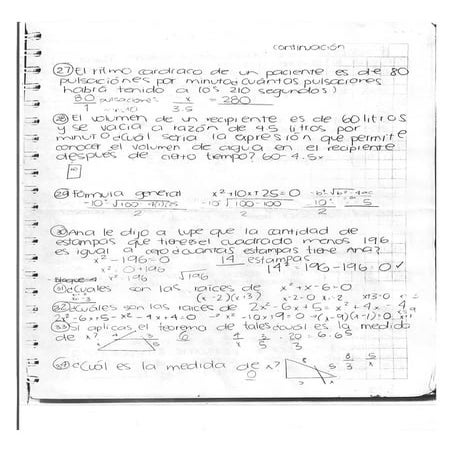 continuación
27) El ritmo cardiaco de un paciente es de 80
pulsaciones por minuto ¿cuántas pulsaciones
habrá tenido a los 210 segundos?
80 pulsaciones x = 280
1 3.5
28) El volumen de un recipiente es de 60 litros
y se vacía a razón de 4.5 litros por
minuto ¿cuál sería la expresión que permite
conocer el volumen de agua en el recipiente
después de cierto tiempo? 60-4.5x
29) Formula general x²+10x+25=0
2 2 2
30) Ana le dijo a Lupe que la cantidad de
estampas que tiene el cuadrado menos 196
es igual a cero ¿cuántas estampas tiene Ana?
x²-196=0 14 estampas
x² 0+196 14²=196-196=0 ✓
x² 196 √196
31) ¿Cuales son las raices de x²+x-6=0
(x-2)(x+3) x-2=0 x=2 x+3=0
32) ¿Cuales son las raices de 2x²-6x+5=x²+4x-4
2x²-6x+5-x²-4x+4=0 x²-10x+9=0 (x-9)(x-1)=0
33) Si aplicas el teorema de tales ¿cual es la medida
de x?
¿Cuál es la medida de x?